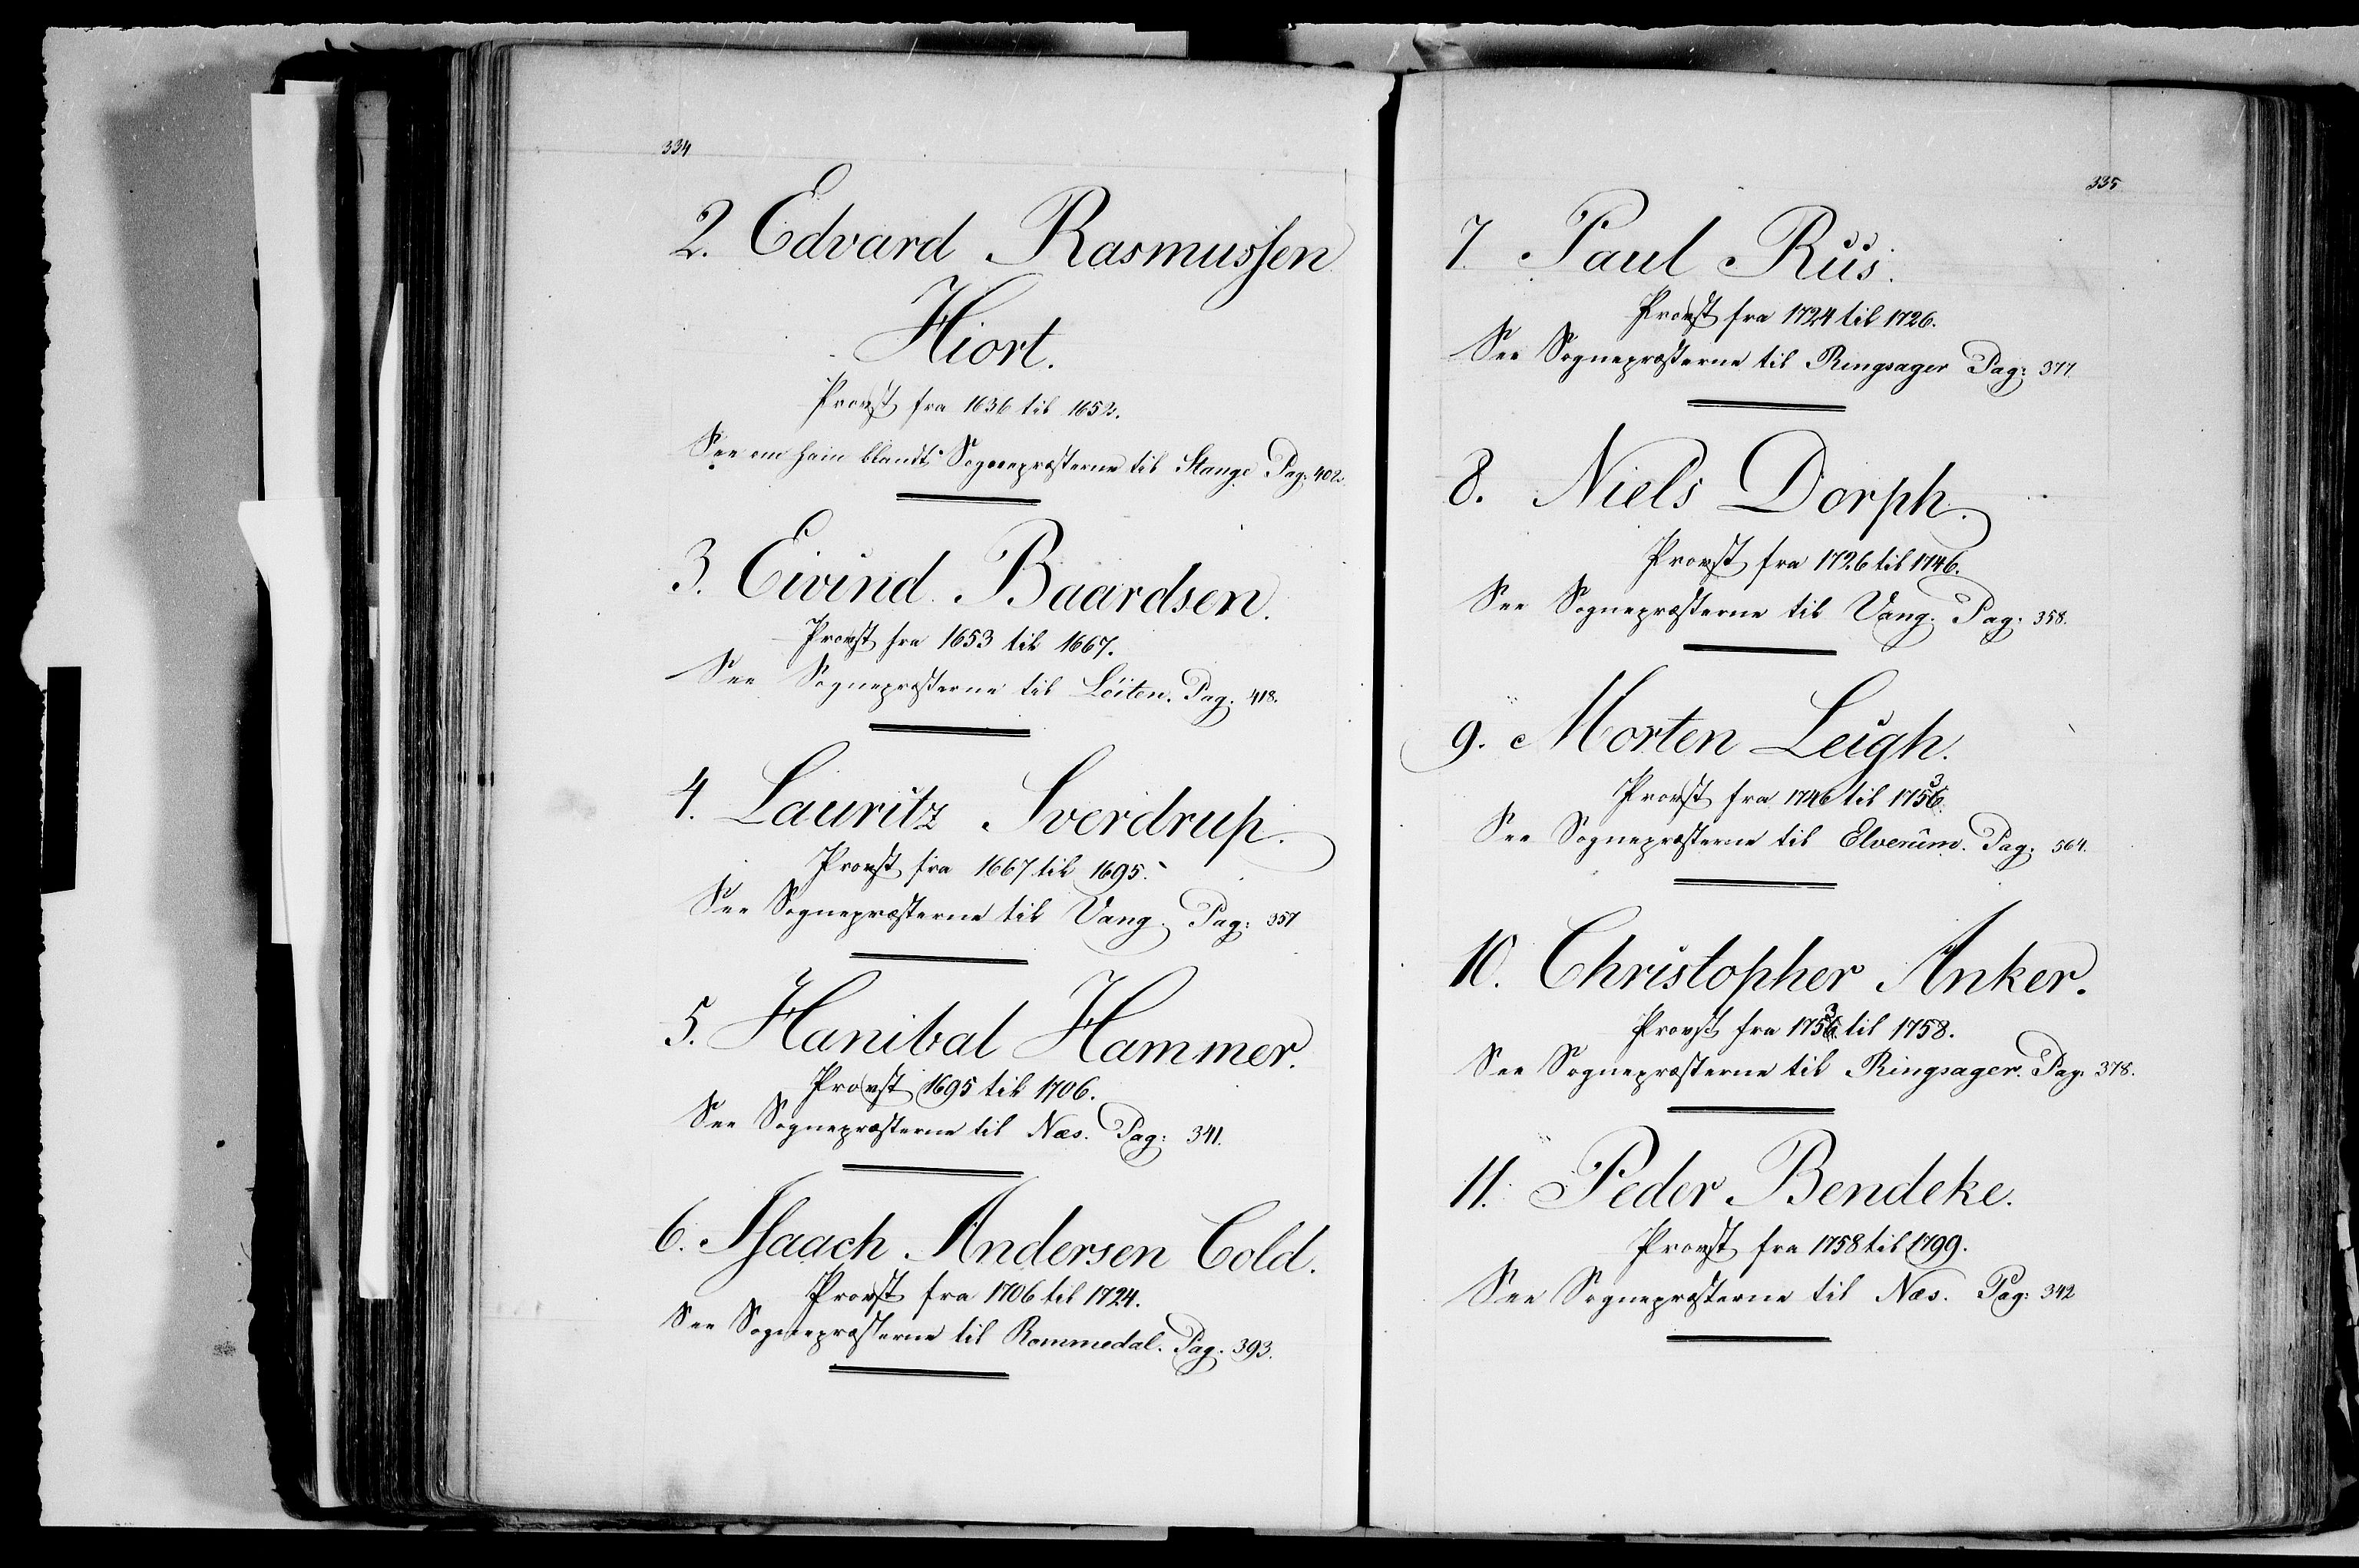 334
2. Edvard Rasmussen
Hiort.
Provst fra 1636 til 1652.
See om ham blandt Sognepræsterne til Stange Pag: 402.
3. Eivind Baardsen.
Provst fra 1653 til 1667.
See Sognepræsterne til Löiten. Pag: 418.
4. Lauritz Sverdrup.
Provst fra 1667 til 1695.
See Sognepræsterne til Vang. Pag: 357
5. Hanibal Hammer.
Provst 1695 til 1706.
See Sognepræsterne til Næs. Pag: 341.
6. Isaach Andersen Cold.
Provst fra 1706 til 1724.
See Sognepræsterne til Rommedal. Pag: 393.
335
7. Paul Rüs.
Provst fra 1724 til 1726.
See Sognepræsterne til Ringsager Pag: 377.
8. Niels Dorph.
Provst fra 1726 til 1746.
See Sognepræsterne til Vang. Pag: 358.
9. Morten Leigh.
Provst fra 1746 til 1753.
See Sognepræsterne til Elverum. Pag: 564.
10. Christopher Anker.
Provst fra 1753 til 1758.
See Sognepræsterne til Ringsager. Pag: 378.
11. Peder Bendeke.
Provst fra 1758 til 1799.
See Sognepræsterne til Næs. Pag: 342